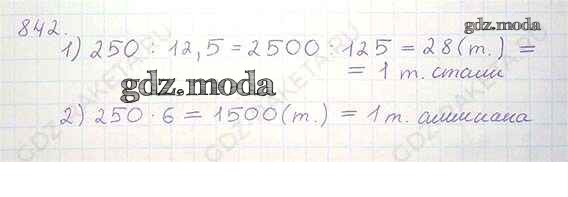 842.
gdz.moda
1) 250 : 12,5 = 2500 : 125 = 28 (т.) =
= 1 т. стали
gdz.moda
2) 250 · 6 = 1500 (т.) = 1 т.
GDZ-RAKETA.RU